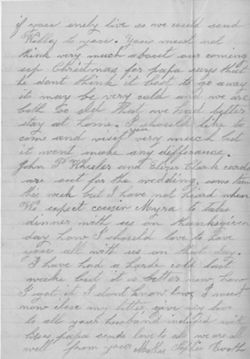 if you only live so we could send
Kelley to you. You need not
think very much about our coming
up Christmas for Papa says that
he dont think it best to go away
it may be very cold and we are
both so old that we had better
stay at home. I should like to
come and visit you very much but
it wont make any difference.
John P Wheeler and Clark cards
are out for the wedding some time
this week but I have not heard when
We expect cousin Myra to take
dinner with us on thanksgiven
day how I should love to have
you all with us on that day.
I have had a hard cold last
weeks but it is better now how
I got it I dont know but I must
now close my letter give my love
to all your husband included with
papa sends love to all we are all
well from your Mother